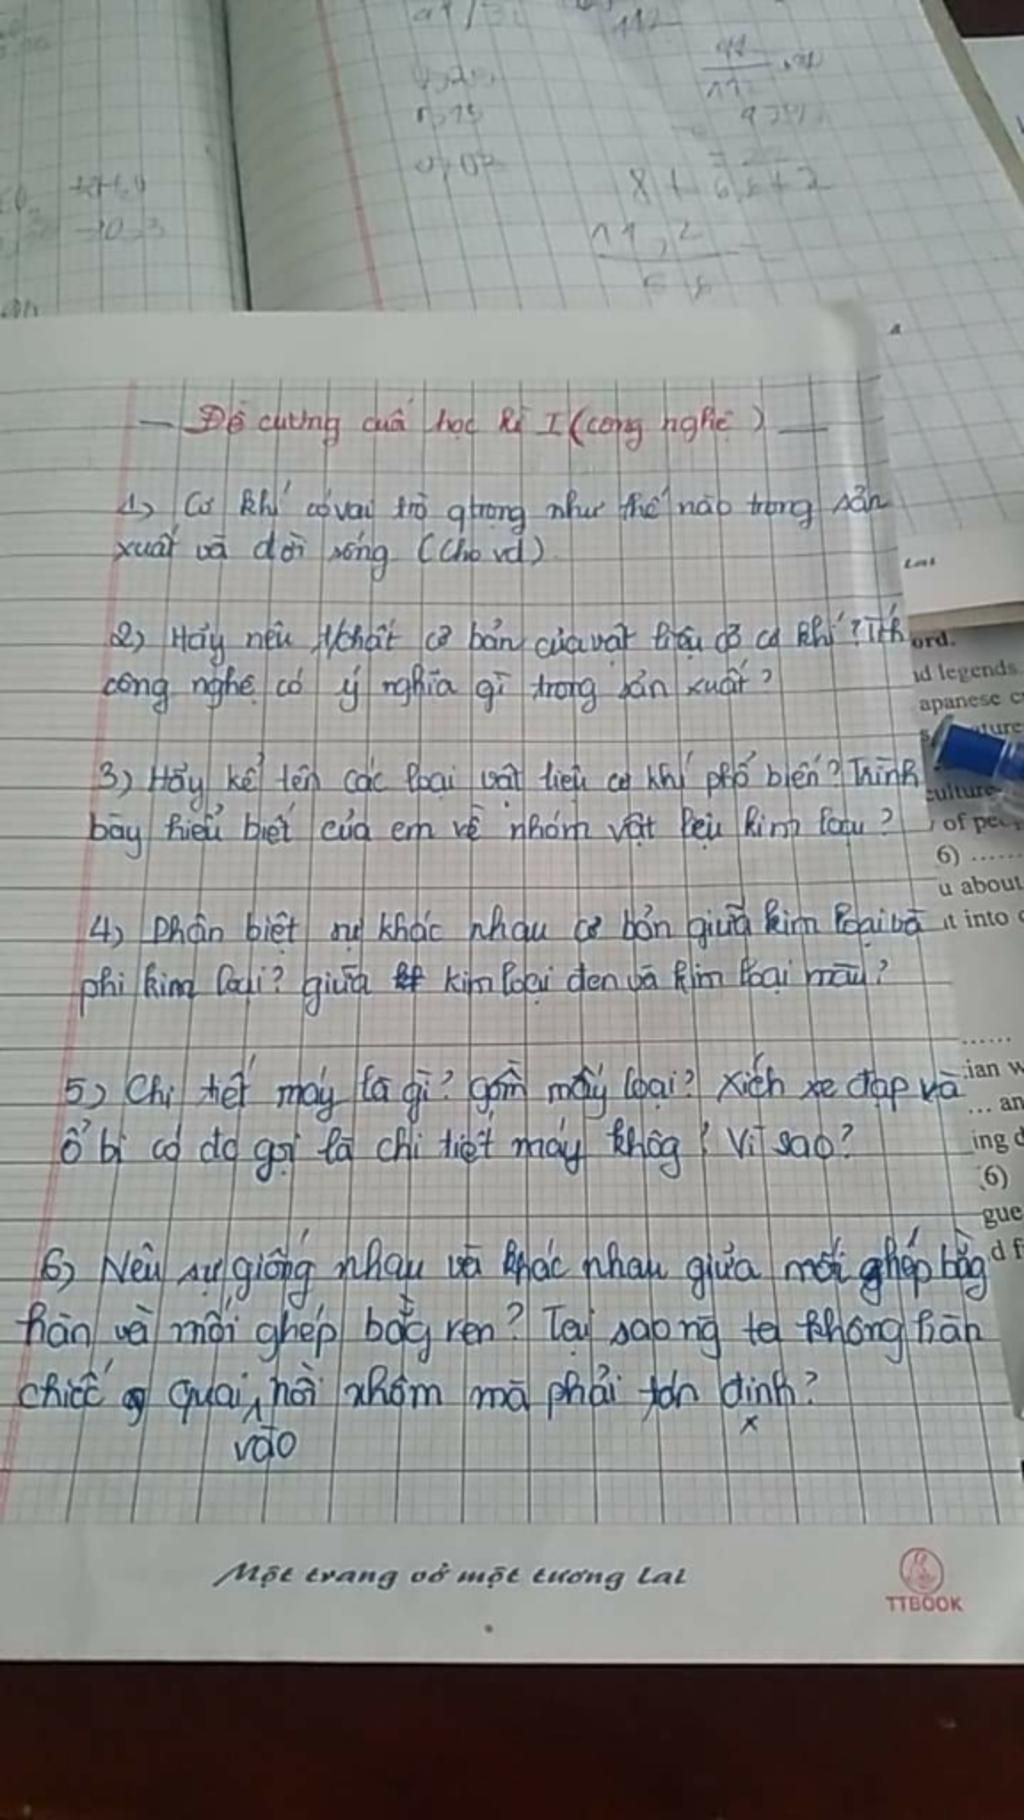 112
8 + 6,5 + 2
11,2
— Đề cương cuối học kì I (công nghệ) —
1) Cơ khí có vai trò qtrong như thế nào trong sản
xuất và đời sống (Cho vd)
2) Hãy nêu t/chất cơ bản của vật liệu cơ khí? Tính
công nghệ có ý nghĩa gì trong sản xuất?
3) Hãy kể tên các loại vật liệu cơ khí phổ biến? Trình
bày hiểu biết của em về nhóm vật liệu kim loại?
4) Phân biệt sự khác nhau cơ bản giữa kim loại và
phi kim loại? giữa kim loại đen và kim loại màu?
5) Chi tiết máy là gì? Gồm mấy loại? Xích xe đạp và
ổ bi có đc gọi là chi tiết máy khôg? Vì sao?
6) Nêu sự giống nhau và khác nhau giữa mối ghép bằg
hàn và mối ghép bằg ren? Tại sao ng ta không hàn
chiếc quai vào nồi nhôm mà phải tán đinh?
x
Một trang vở một tương lai
TTBOOK
Lai
ord.
nd legends.
apanese c
culture
of pe
6) ......
u about
it into
......
ian w
... an
ing d
6)
gue
d f